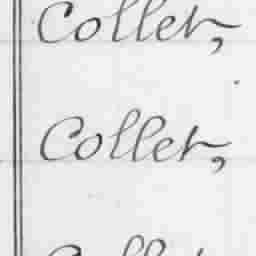 Collet,
Collet,